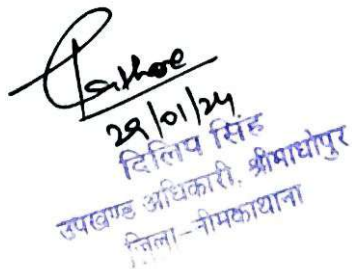 29/01/24
दिलिप सिंह
उपखण्ड अधिकारी, श्रीमाधोपुर
जिला-नीमकाथाना